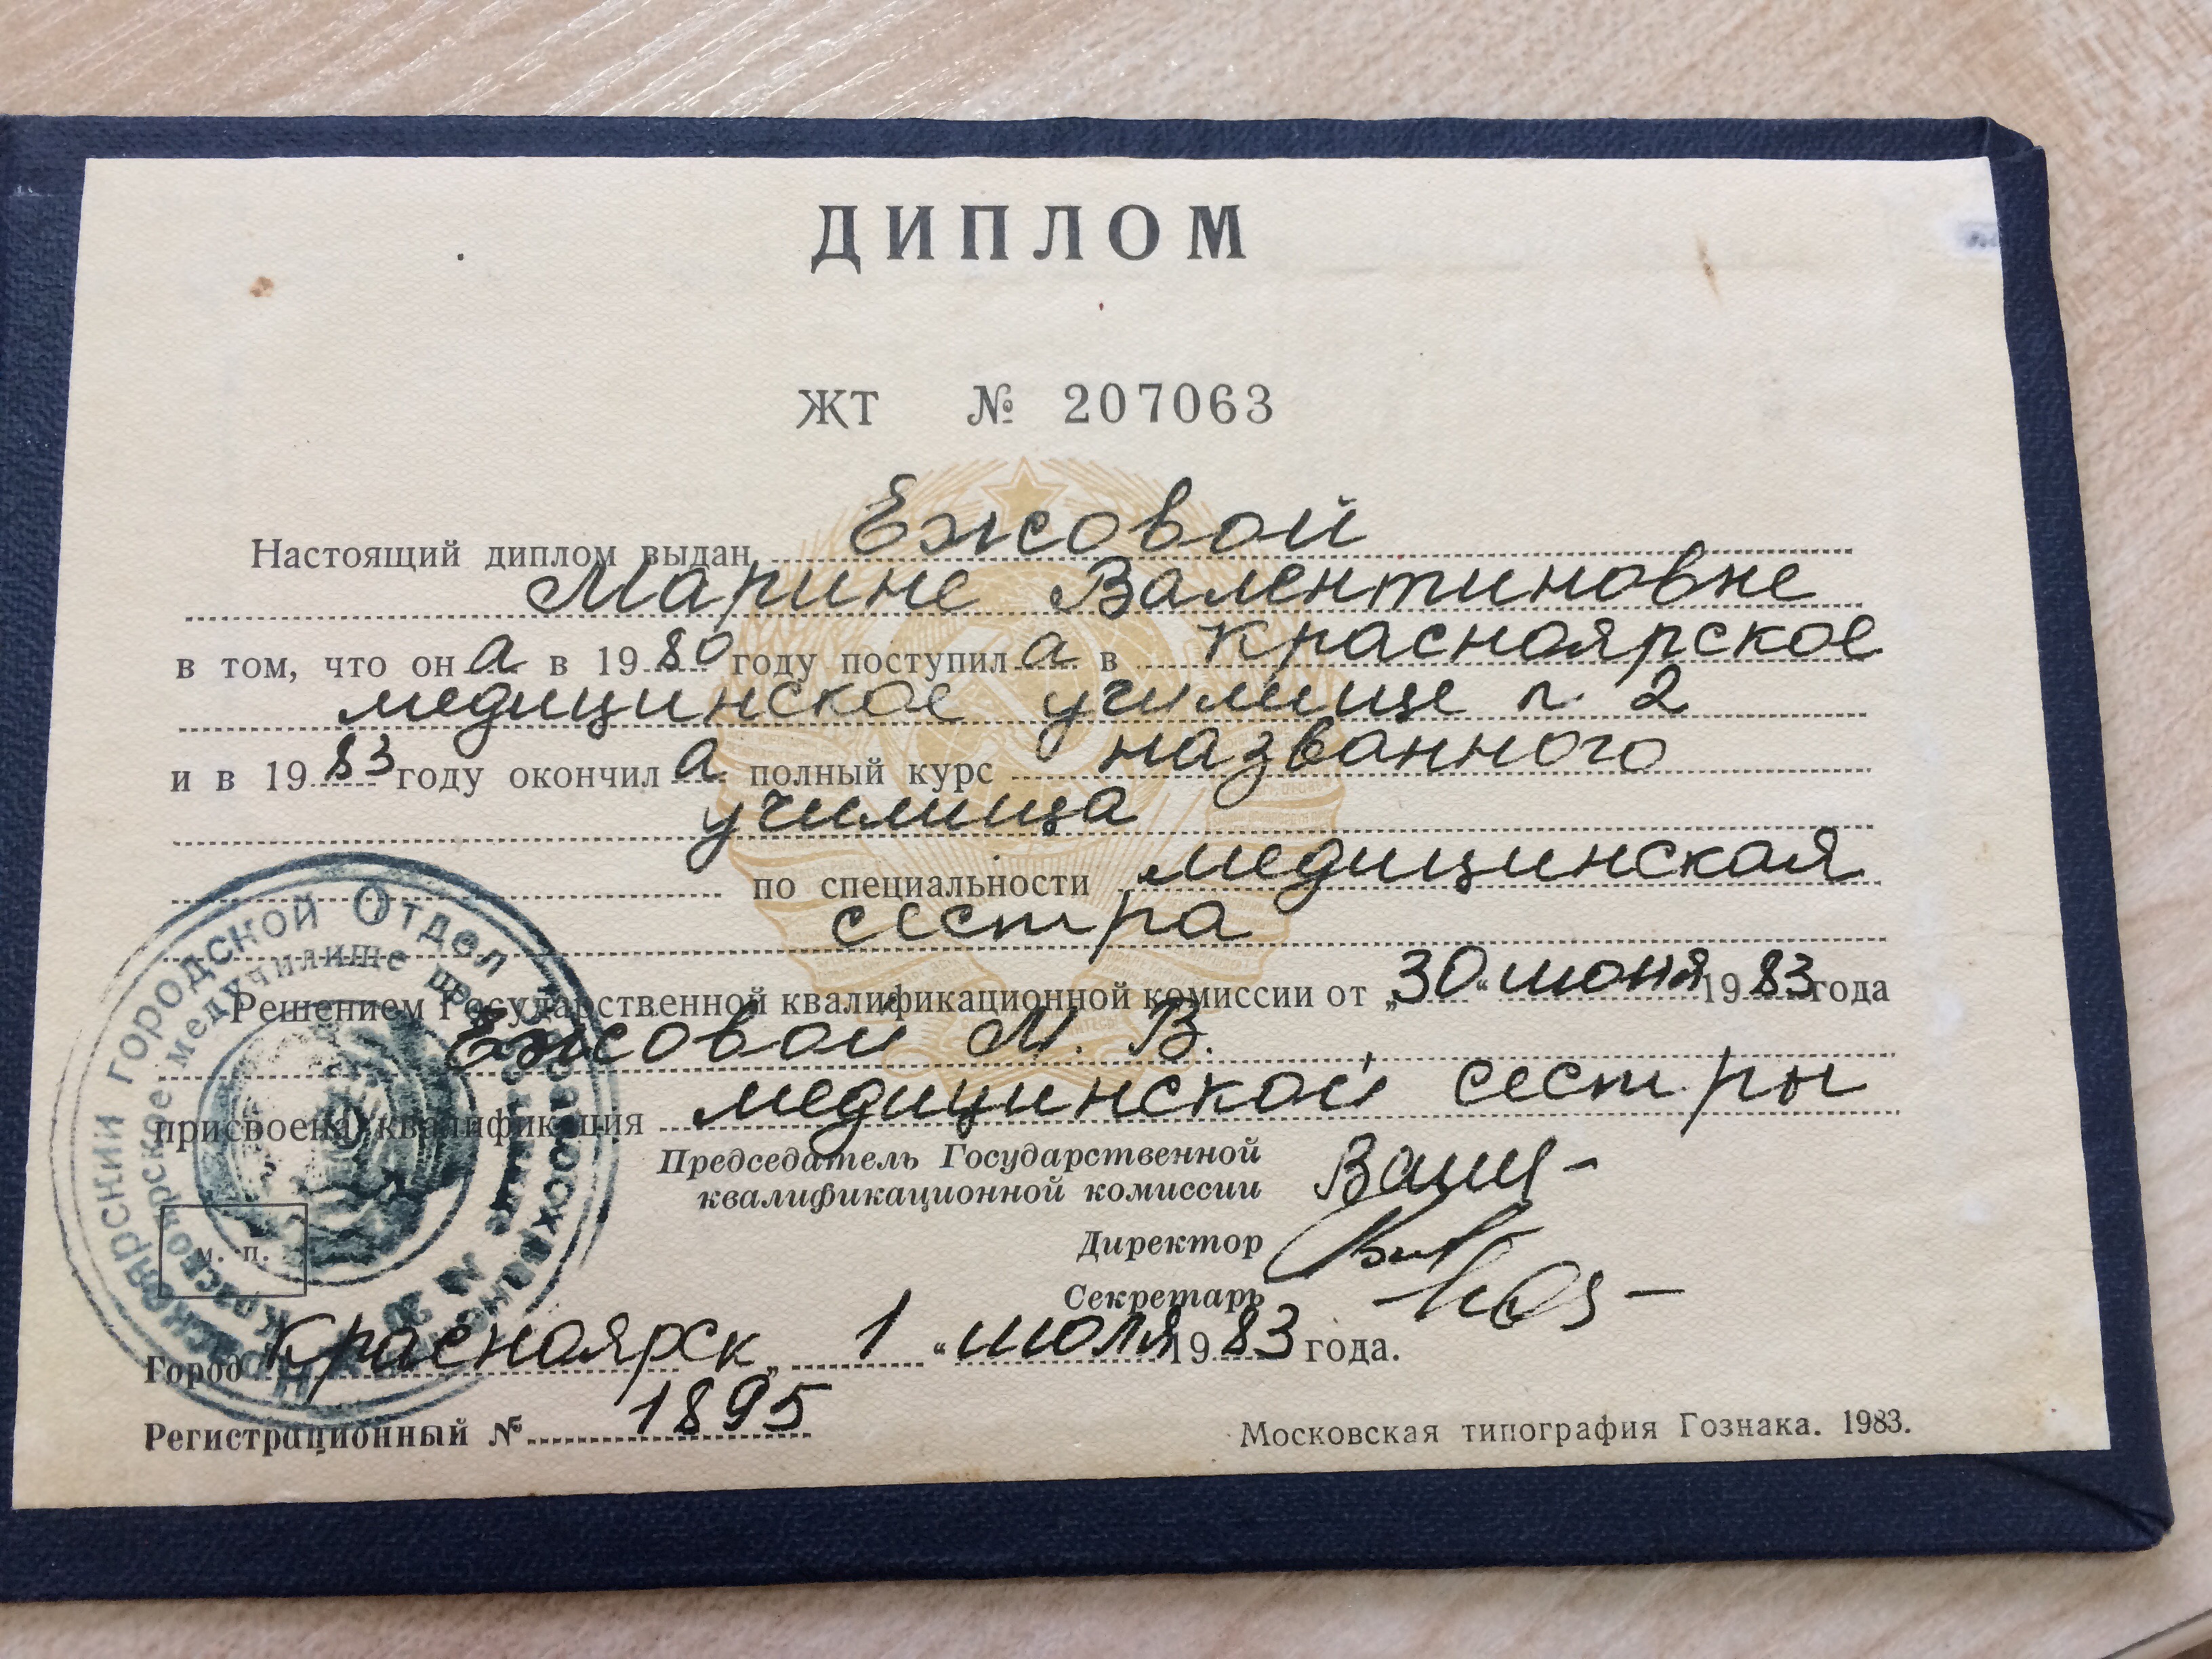 ДИПЛОМ
ЖТ № 207063
Настоящий диплом выдан Ежовой
Марине Валентиновне
в том, что он а в 1980 году поступил а в Красноярское
медицинское училище n 2
и в 1983 году окончил а полный курс названного
училища
по специальности медицинская
сестра
Решением Государственной квалификационной комиссии от „30“ июня 1983 года
Ежовой М. В.
присвоена квалификация медицинской сестры
Председатель Государственной
квалификационной комиссии
Директор
Секретарь
м. п.
Город Красноярск „ 1 “ июля 1983 года.
Регистрационный № 1895
Московская типография Гознака. 1983.
городской Отдел
медучилище